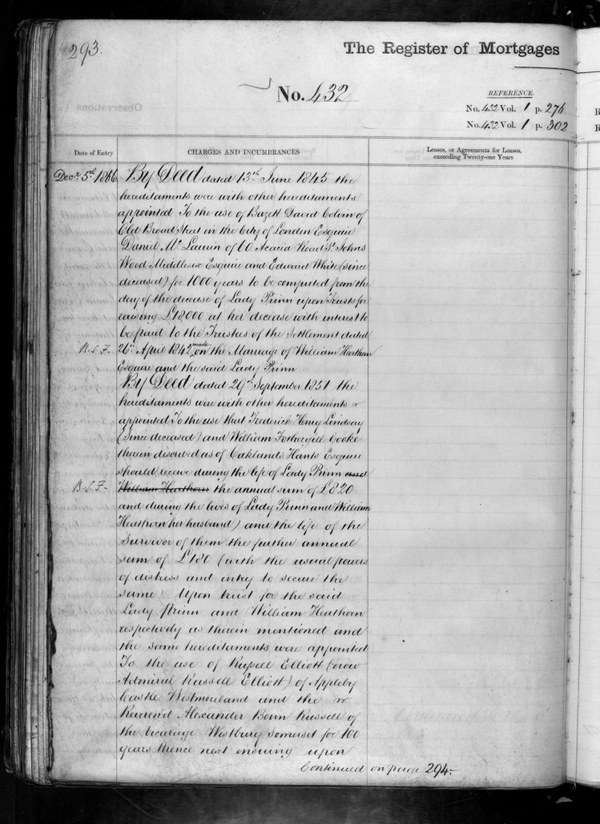 293.
The Register of Mortgages
No. 432
REFERENCE.
No. 432 Vol. 1 p. 276
No. 432 Vol. 1 p. 302
Observations
Date of Entry
CHARGES AND INCUMBRANCES
Leases, or Agreements for Leases, exceeding Twenty-one Years
Decr 5th 1866 By Deed dated 13th June 1845 the
hereditaments were with other hereditaments
appointed To the use of Bazett David Colvin of
Old Broad Street in the City of London Esquire
Daniel Mc Laurin of 60 Acacia Road St Johns
Wood Middlesex Esquire and Edward White (since
deceased) for 1000 years to be computed from the
day of the decease of Lady Prinn upon Trusts for
raising £12000 at her decease with interest to
be paid to the Trustees of the Settlement dated
26th April 1842 made on the Marriage of William Heathorn
Esquire and the said Lady Prinn
By Deed dated 29th September 1851 the
hereditaments were with other hereditaments
appointed To the use that Frederick Henry Lindsay
(since deceased) and William Cooke
therein described as of Oaklands Hants Esquire
should receive during the life of Lady Prinn and
William Heathorn the annual sum of £820
and during the lives of Lady Prinn and William
Heathorn her husband) and the life of the
Survivor of them the further annual
sum of £180 (with the usual powers
of distress and entry to secure the
same) Upon trust for the said
Lady Prinn and William Heathorn
respectively as therein mentioned and
the same hereditaments were appointed
To the use of Russell Elliott (now
Admiral Russell Elliott) of Appleby
Castle Westmorland and the
Reverend Alexander Benn Russell of
the Vicarage Westbury Somerset for 100
years thence next ensuing upon
Continued on page 294.